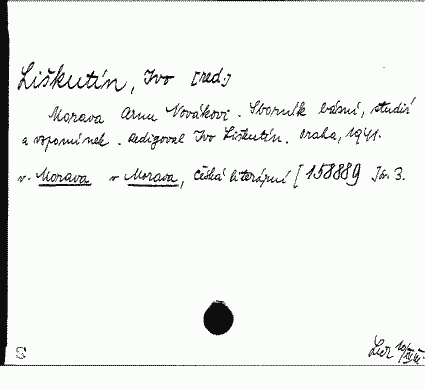 Liškutín, Ivo [red.]
Morava Arnu Novákovi. Sborník básní, studií
a vzpomínek. Redigoval Ivo Liškutín. Praha, 1941.
v. Morava v Morava, Česká literární [158889 Is. 3.